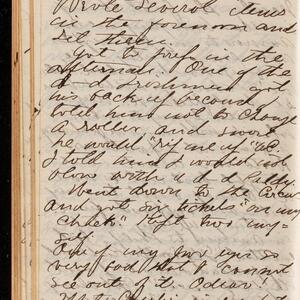 Wrote several items
in the forenoon and
set them.
Got to press in the
afternoon. One of the
d—d Freshmen got
his back up because I
told him not to change
a roller, and swore
he would "rip me up" &c.
I told him I would not
blow worth a d—d
Went down to the Circus
and got six tickets "on my
cheek". Kept two my-
self
One of my two eyes so
very sod that I cannot
see out of it. O dear!